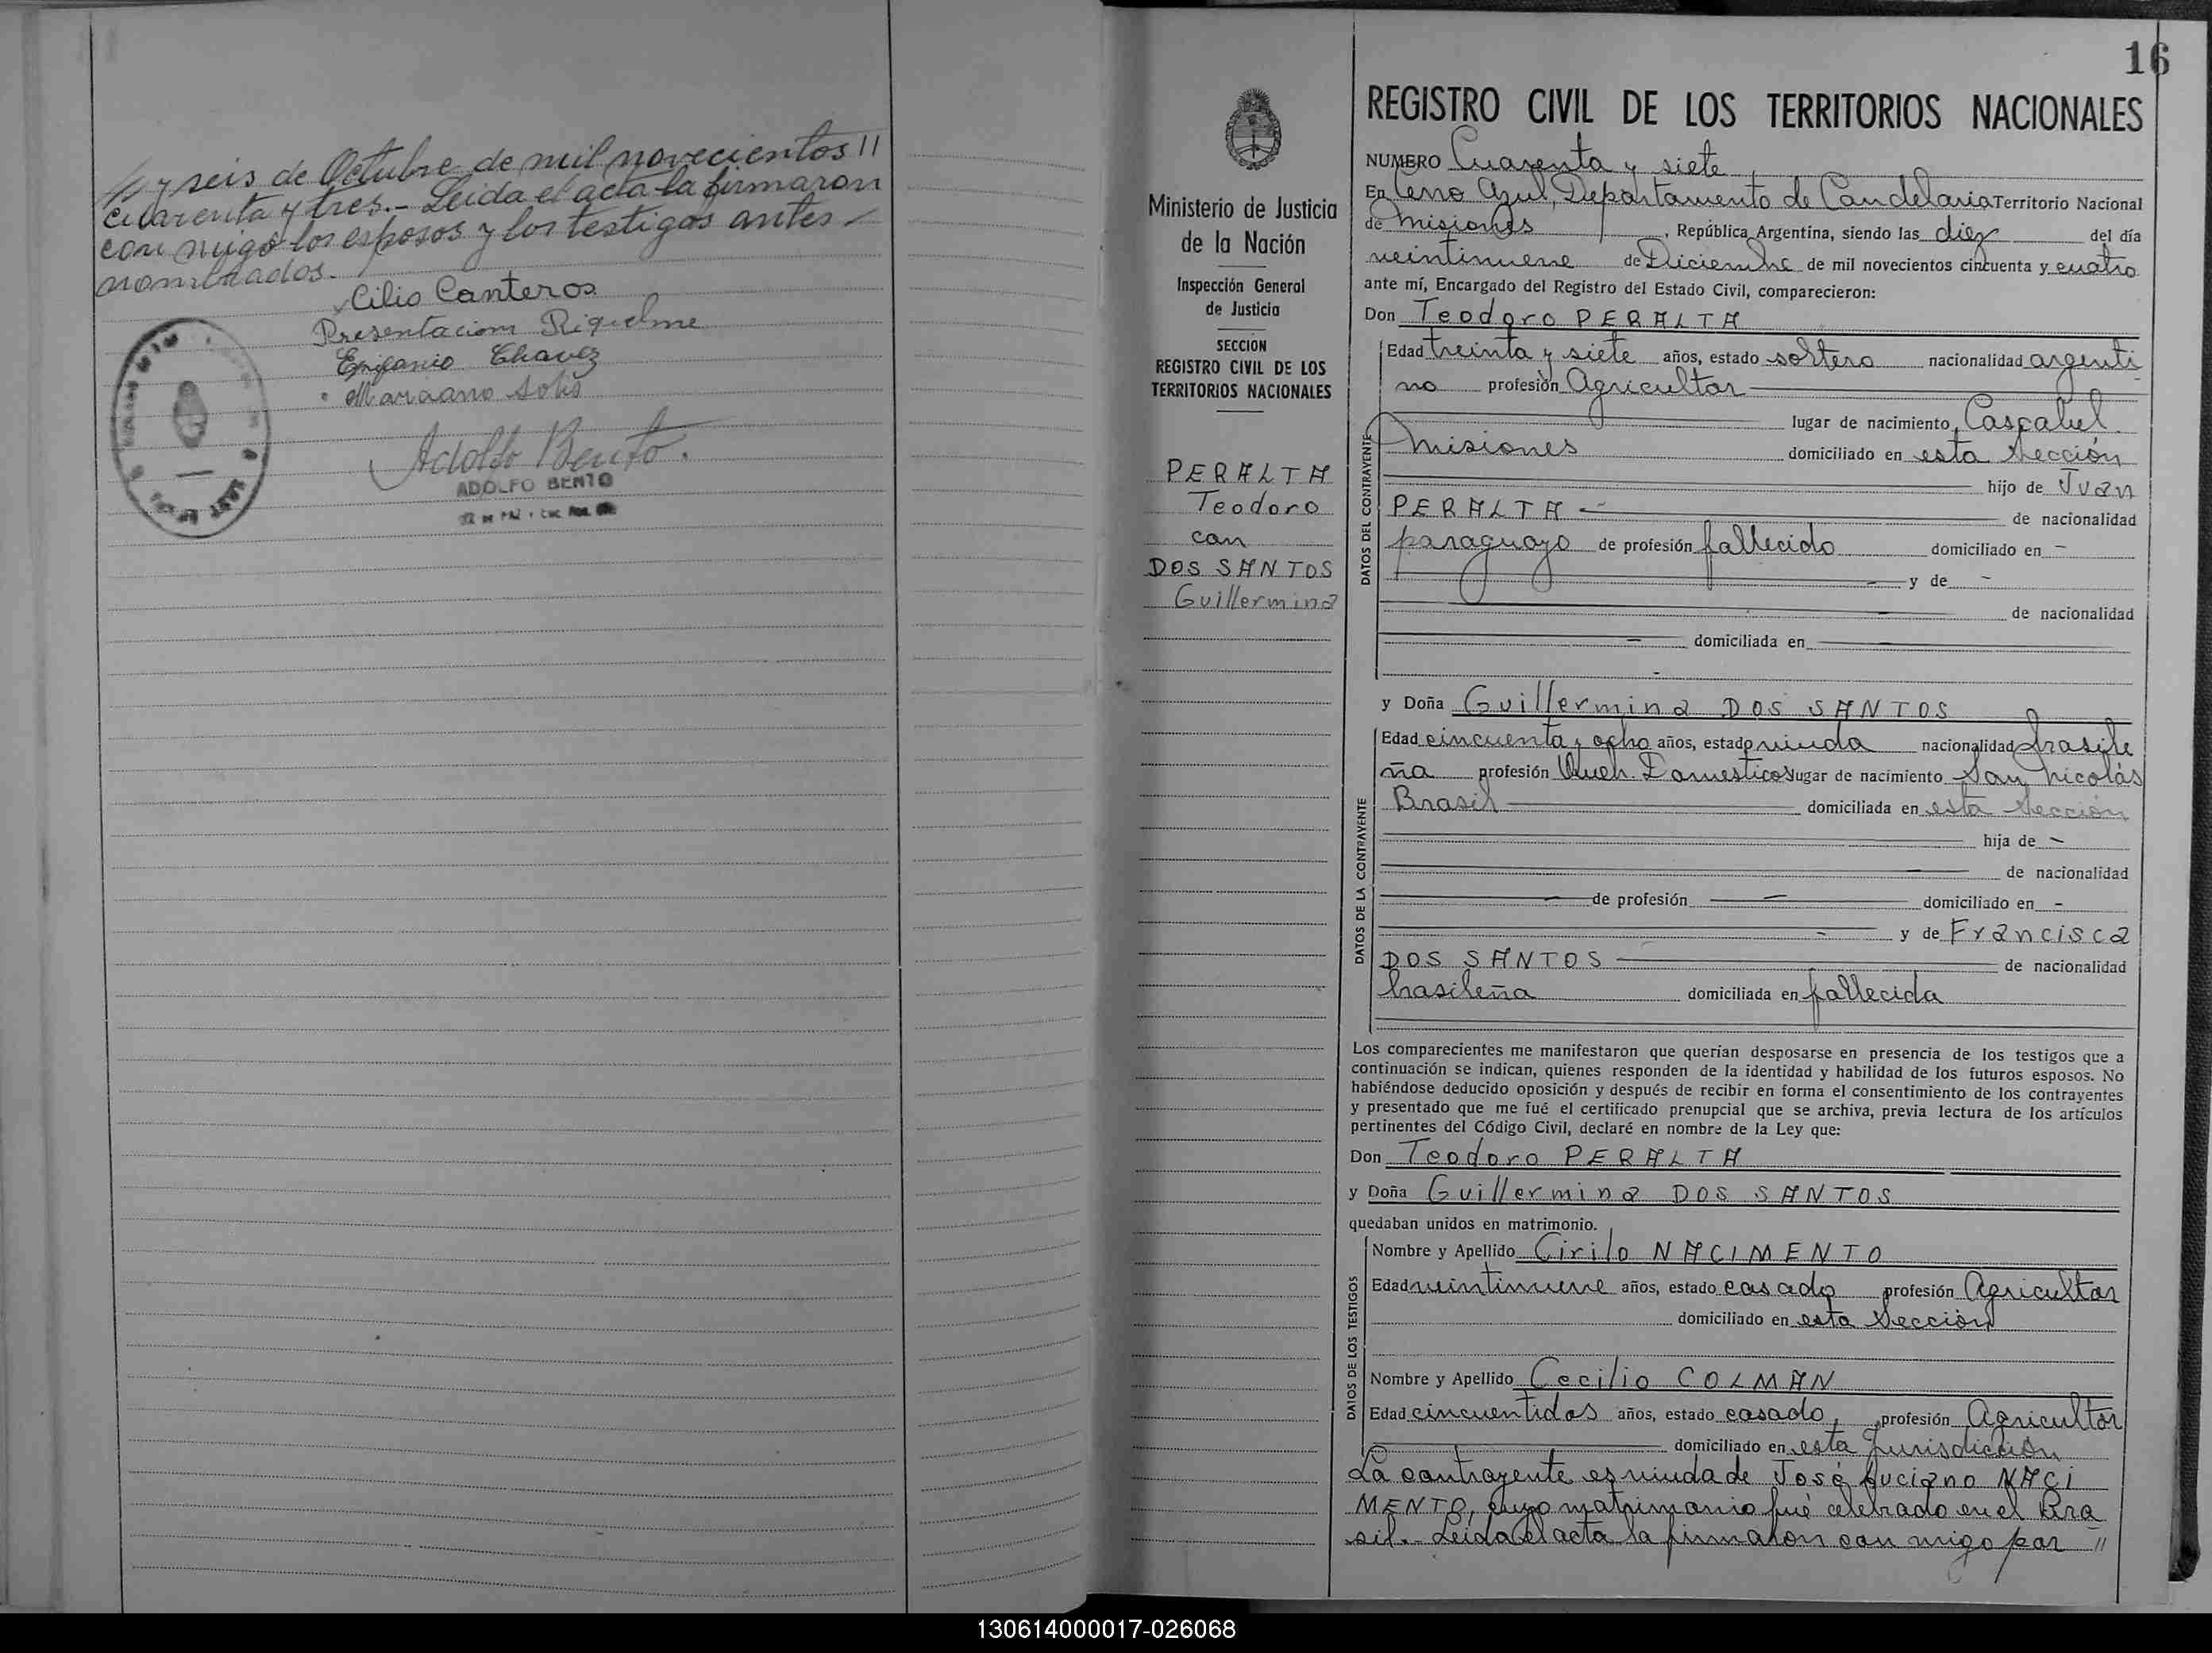 // y seis de Octubre de mil novecientos //
cuarenta y tres.- Leida el acta la firmaron
con migo los esposos y los testigos antes
nombrados.
Cilio Canteros
Presentacion Riquelme
Epifanio Chavez
Marciano Solis
Adolfo Bento.
ADOLFO BENTO
16
Ministerio de Justicia
de la Nación
Inspección General
de Justicia
SECCION
REGISTRO CIVIL DE LOS
TERRITORIOS NACIONALES
PERALTA
Teodoro
con
DOS SANTOS
Guillermina
REGISTRO CIVIL DE LOS TERRITORIOS NACIONALES
NUMERO Cuarenta y siete
En Cerro Azul, Departamento de Candelaria Territorio Nacional
de Misiones, República Argentina, siendo las diez del día
veintinueve de Diciembre de mil novecientos cincuenta y cuatro
ante mí, Encargado del Registro del Estado Civil, comparecieron:
Don Teodoro PERALTA
DATOS DEL CONTRAYENTE
Edad treinta y siete años, estado soltero nacionalidad argenti
no profesión Agricultor
lugar de nacimiento Cascabel
Misiones domiciliado en esta Sección
hijo de Juan
PERALTA de nacionalidad
paraguayo de profesión fallecido domiciliado en -
y de -
de nacionalidad
domiciliada en
y Doña Guillermina DOS SANTOS
DATOS DE LA CONTRAYENTE
Edad cincuenta y ocho años, estado viuda nacionalidad brasile
ña profesión Queh. Domesticos lugar de nacimiento San Nicolás
Brasil domiciliada en esta Sección
hija de -
de nacionalidad
de profesión domiciliado en -
y de Francisca
DOS SANTOS de nacionalidad
brasileña domiciliada en fallecida
Los comparecientes me manifestaron que querían desposarse en presencia de los testigos que a
continuación se indican, quienes responden de la identidad y habilidad de los futuros esposos. No
habiéndose deducido oposición y después de recibir en forma el consentimiento de los contrayentes
y presentado que me fué el certificado prenupcial que se archiva, previa lectura de los artículos
pertinentes del Código Civil, declaré en nombre de la Ley que:
Don Teodoro PERALTA
y Doña Guillermina DOS SANTOS
quedaban unidos en matrimonio.
DATOS DE LOS TESTIGOS
Nombre y Apellido Cirilo NACIMENTO
Edad veintinueve años, estado casado profesión Agricultor
domiciliado en esta Sección
Nombre y Apellido Cecilio COLMAN
Edad cincuentidos años, estado casado, profesión Agricultor
domiciliado en esta Jurisdicción
La contrayente es viuda de José Luciano NACI
MENTO, cuyo matrimonio fué celebrado en el Bra
sil.- Leida el acta la firmaron con migo por //
130614000017-026068